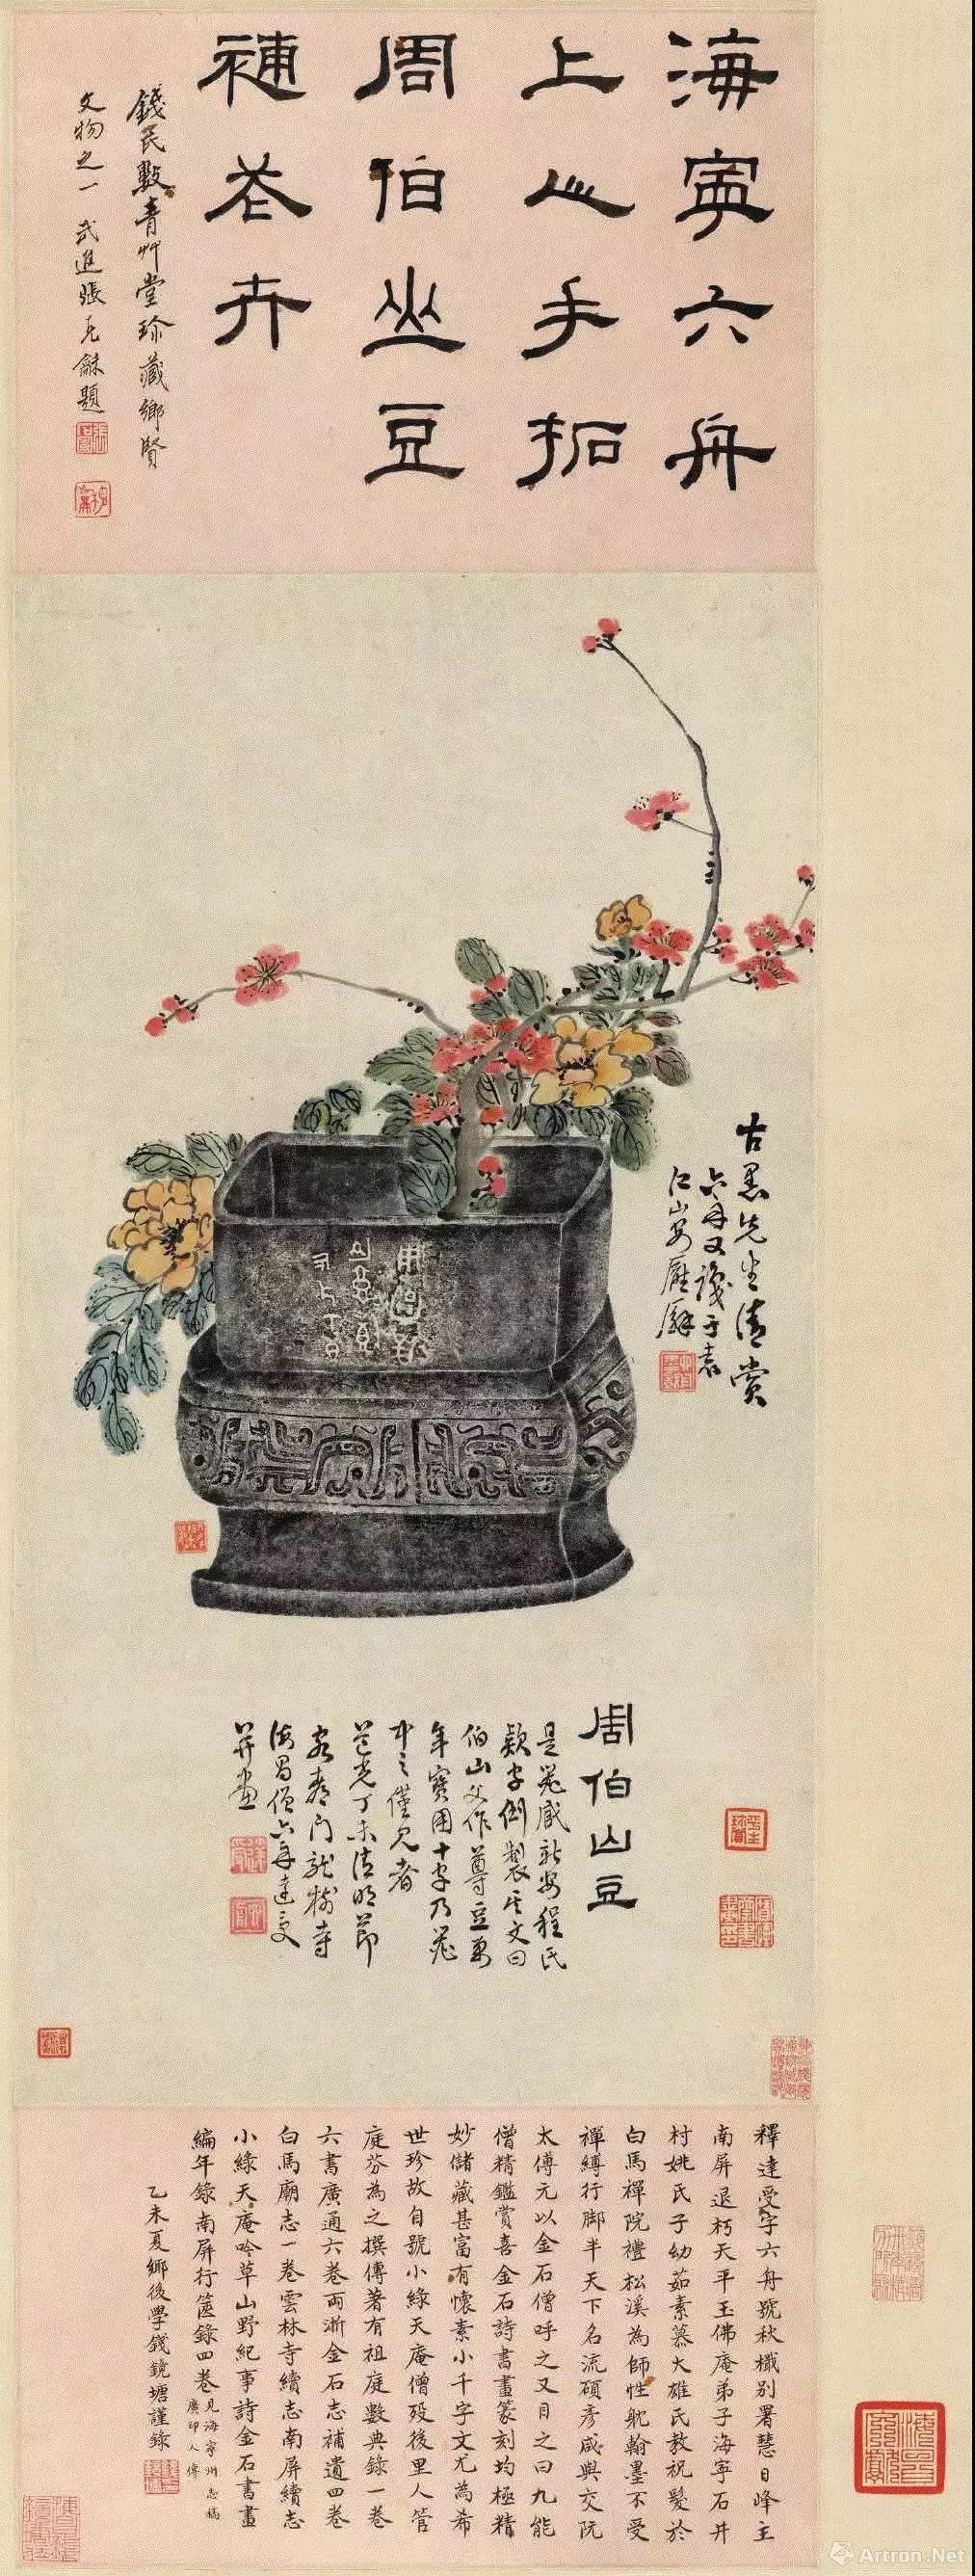 海寧六舟
上人手拓
周伯山豆
補花卉
錢氏數青艸堂珍藏鄉賢
文物之一 武進張克龢題
古墨先生清賞
六舟又識于袁
仁山安雁廨
周伯山豆
是器咸新安程氏
款字倒製其文曰
伯山父作尊豆萬
年寶用十字乃器
中之僅見者
道光丁未清明節
客都門龍樹寺
海昌僧六舟達受
并畫
釋達受字六舟號秋檝別署慧日峰主
南屏退朽天平玉佛庵弟子海寧石井
村姚氏子幼茹素慕大雄氏教祝髮於
白馬禪院禮松溪為師性躭翰墨不受
禪縛行脚半天下名流碩彥咸與交阮
太傅元以金石僧呼之又目之曰九能
僧精鑑賞喜金石詩書畫篆刻均極精
妙儲藏甚富有懷素小千字文尤為希
世珍故自號小綠天庵僧歿後里人管
庭芬為之撰傳著有祖庭數典錄一卷
六書廣通六卷兩浙金石志補遺四卷
白馬廟志一卷雲林寺續志南屏續志
小綠天庵吟草山野紀事詩金石書畫
編年錄南屏行篋錄四卷 見海寧州志稿
廣印人傳
乙未夏鄉後學錢鏡塘謹錄
Artron.Net